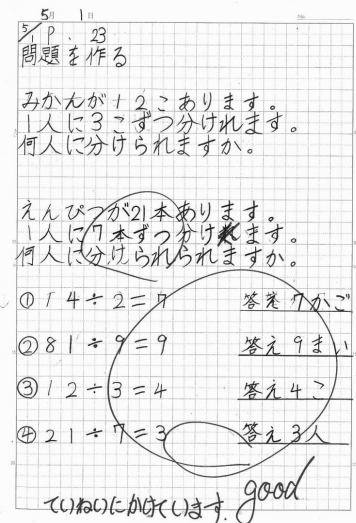 5月 1日 No.
5/1 P. 23
問題を作る
みかんが12こあります。
1人に3こずつ分けれます。
何人に分けられますか。
えんぴつが21本あります。
1人に7本ずつ分けます。
何人に分けられられますか。
① 14÷2=7 答え7かご
② 81÷9=9 答え9まい
③ 12÷3=4 答え4こ
④ 21÷7=3 答え3人
ていねいにかけています。good